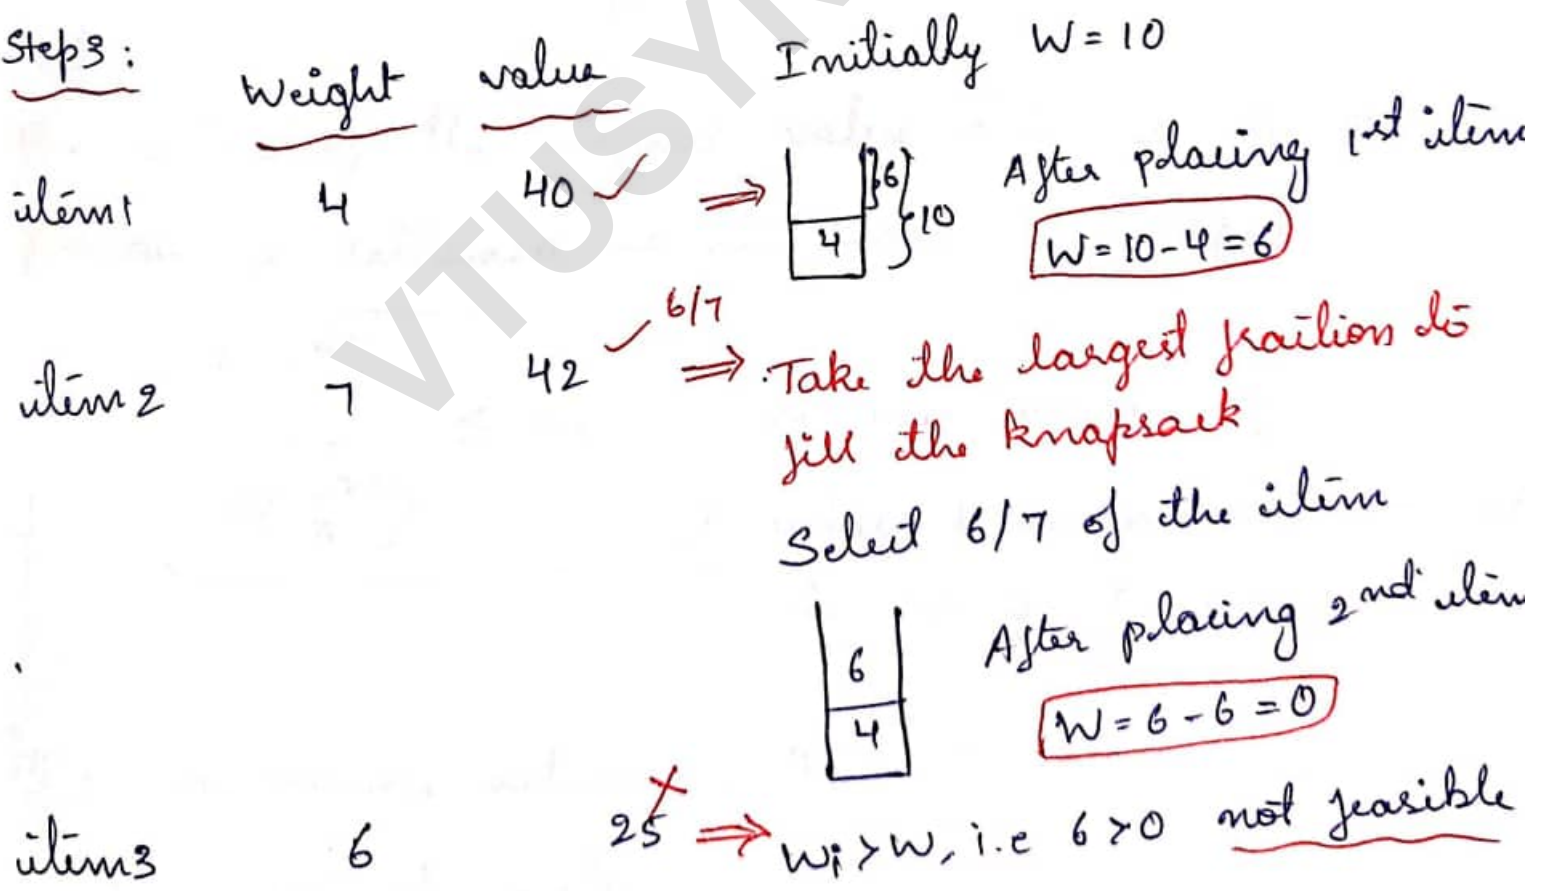 Step3:
Weight value Initially W = 10
item1 4 40 ✓ ⇒ 4 }6 }10 After placing 1st item
W = 10-4 = 6
item2 7 42 ✓ 6/7 ⇒ Take the largest fraction to
fill the knapsack
Select 6/7 of the item
6
4
After placing 2nd item
W = 6 - 6 = 0
item3 6 25 ✗ ⇒ Wi > W, i.e 6 > 0 not feasible